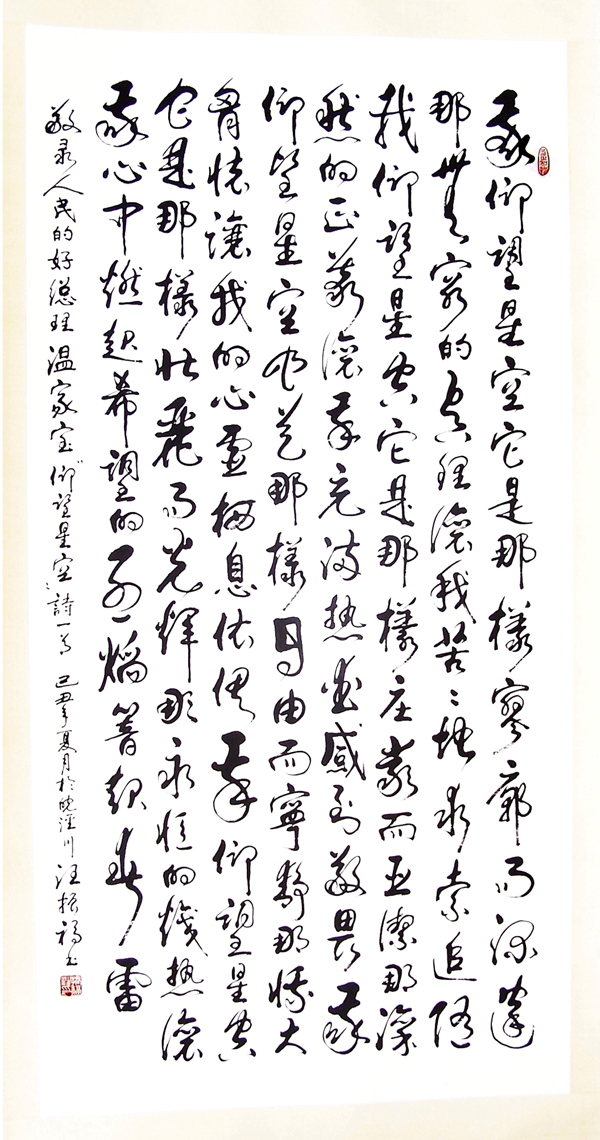 我仰望星空它是那樣寥廓而深邃
那無窮的真理讓我苦〻地求索追隨
我仰望星空它是那樣庄嚴而圣潔那凛
然的正義讓我充满热爱感到敬畏我
仰望星空它是那樣自由而寧静那博大
胸懷讓我的心靈栖息依偎我仰望星空
它是那樣壮麗而光輝那永恒的熾热讓
我心中燃起希望的烈焰響起春雷
敬录人民的好总理温家宝“仰望星空”詩一首 己丑年夏月於 涇川汪振福书